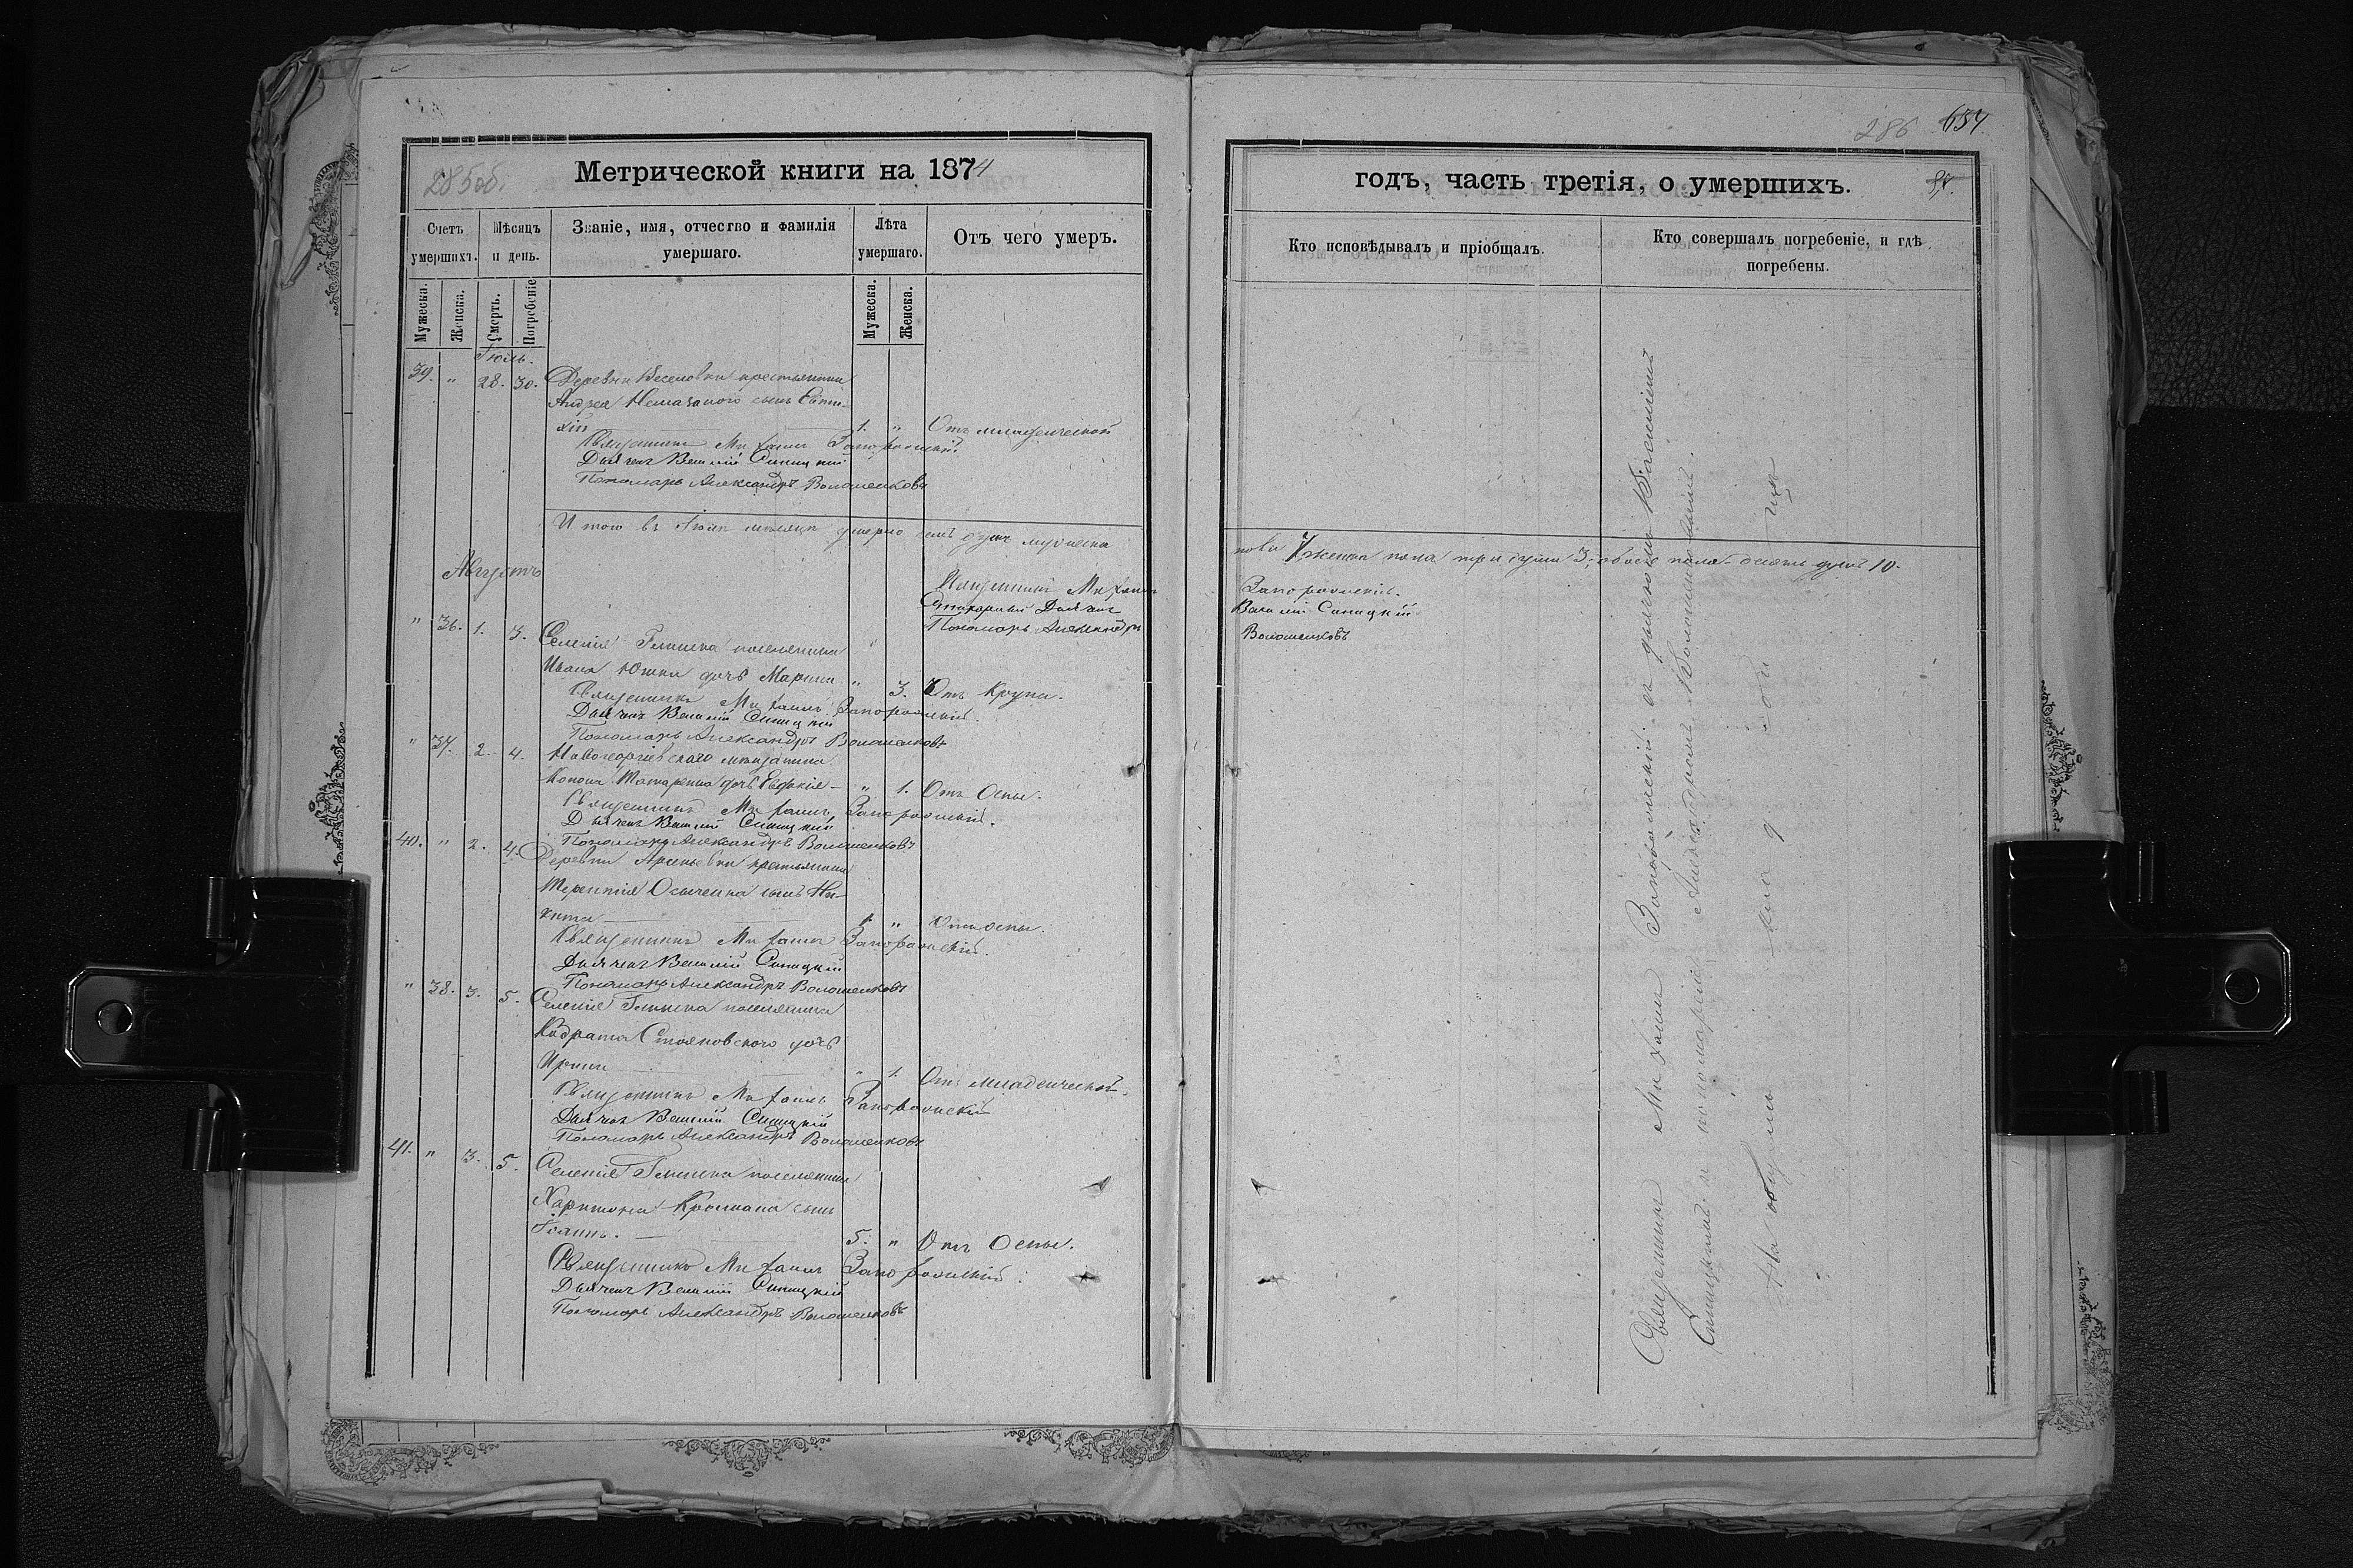 285об.
Метрической книги на 1874
Счетъ умершихъ.
Мѣсяцъ и день.
Званіе, имя, отчество и фамилія умершаго.
Лѣта умершаго.
Отъ чего умеръ.
Мужеска.
Женска.
Смерть.
Погребеніе
Мужеска.
Женска.
Іюль.
39. " 28. 30. Деревни Веселовки крестьянина
Андрея сынъ Евти-
хій 1. " Отъ младенческой
Священникъ Михаилъ
Дьячекъ Василій Синицкій
Пономарь Александръ Волошенковъ
Итого въ Іюлѣ мѣсяцѣ умерло семь душъ мужеска
Августъ
Священникъ Михаилъ
Дьячекъ
Пономарь Александръ
" 36. 1. 3. Селенія Глинска поселянина
Ивана Юшка дочь Марина " 3. Отъ Крупа.
Священникъ Михаилъ
Дьячекъ Василій Синицкій
Пономарь Александръ Волошенковъ
" 37. 2. 4. Новогеоргіевскаго мѣщанина
Конона дочь Евдокія " 1. Отъ Оспы.
Священникъ Михаилъ
Дьячекъ Василій Синицкій
Пономарь Александръ Волошенковъ
40. " 2. 4. Деревни Арсеньевки крестьянина
Терентія Осыченка сынъ Ни-
кита 1. " Отъ оспы.
Священникъ Михаилъ
Дьячекъ Василій Синицкій
Пономарь Александръ Волошенковъ
" 38. 3. 5. Селенія Глинска поселянина
Кодрата Стояновского дочь
Ирина " 1. Отъ младенческой.
Священникъ Михаилъ
Дьячекъ Василій Синицкій
Пономарь Александръ Волошенковъ
41. " 3. 5. Селенія Глинска поселянина
Харитона сынъ
Іоаннъ. 5. " Отъ Оспы.
Священникъ Михаилъ
Дьячекъ Василій Синицкій
Пономарь Александръ Волошенковъ
286 654
годъ, часть третія, о умершихъ.
Кто исповѣдывалъ и пріобщалъ.
Кто совершалъ погребеніе, и гдѣ погребены.
пола 7, женска пола три души 3, обоего пола десять душъ 10.
Василій Синицкій
Волошенковъ
Священникъ Михаилъ съ дьячкомъ Василіемъ
Синицкимъ и пономаремъ Александромъ Волошенковымъ.
На